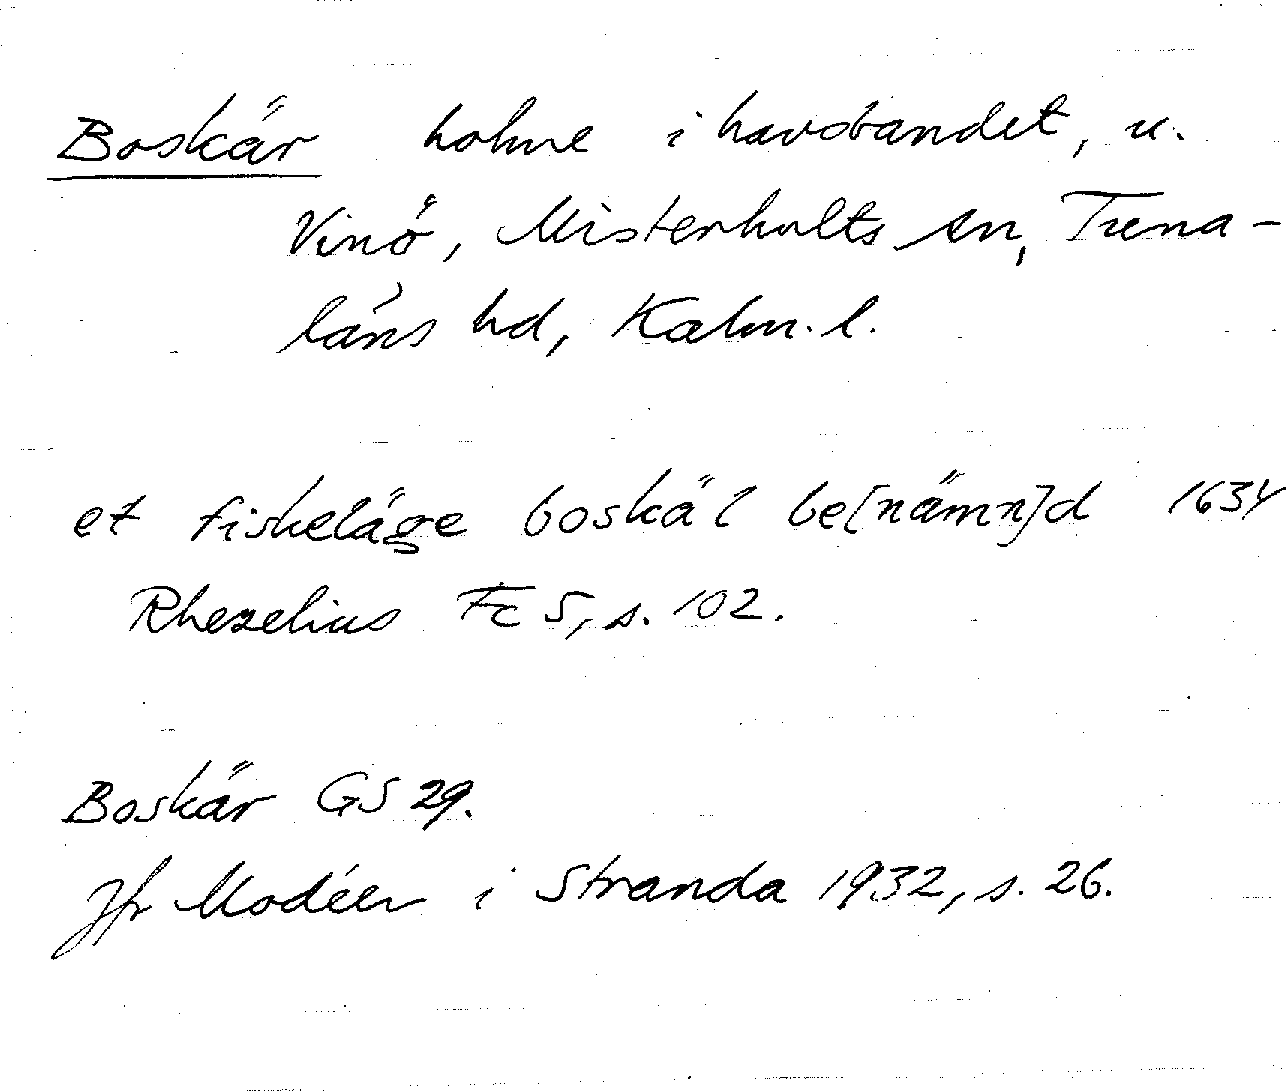 Boskär holme i havsbandet, u.
Vinö, Misterhults sn, Tuna-
läns hd, Kalm. l.
et fiskeläge boskäl be[nämn]d 1634
Rhezelius Fc 5, s. 102.
Boskär GS 29.
Jfr Modéer i Stranda 1932, s. 26.